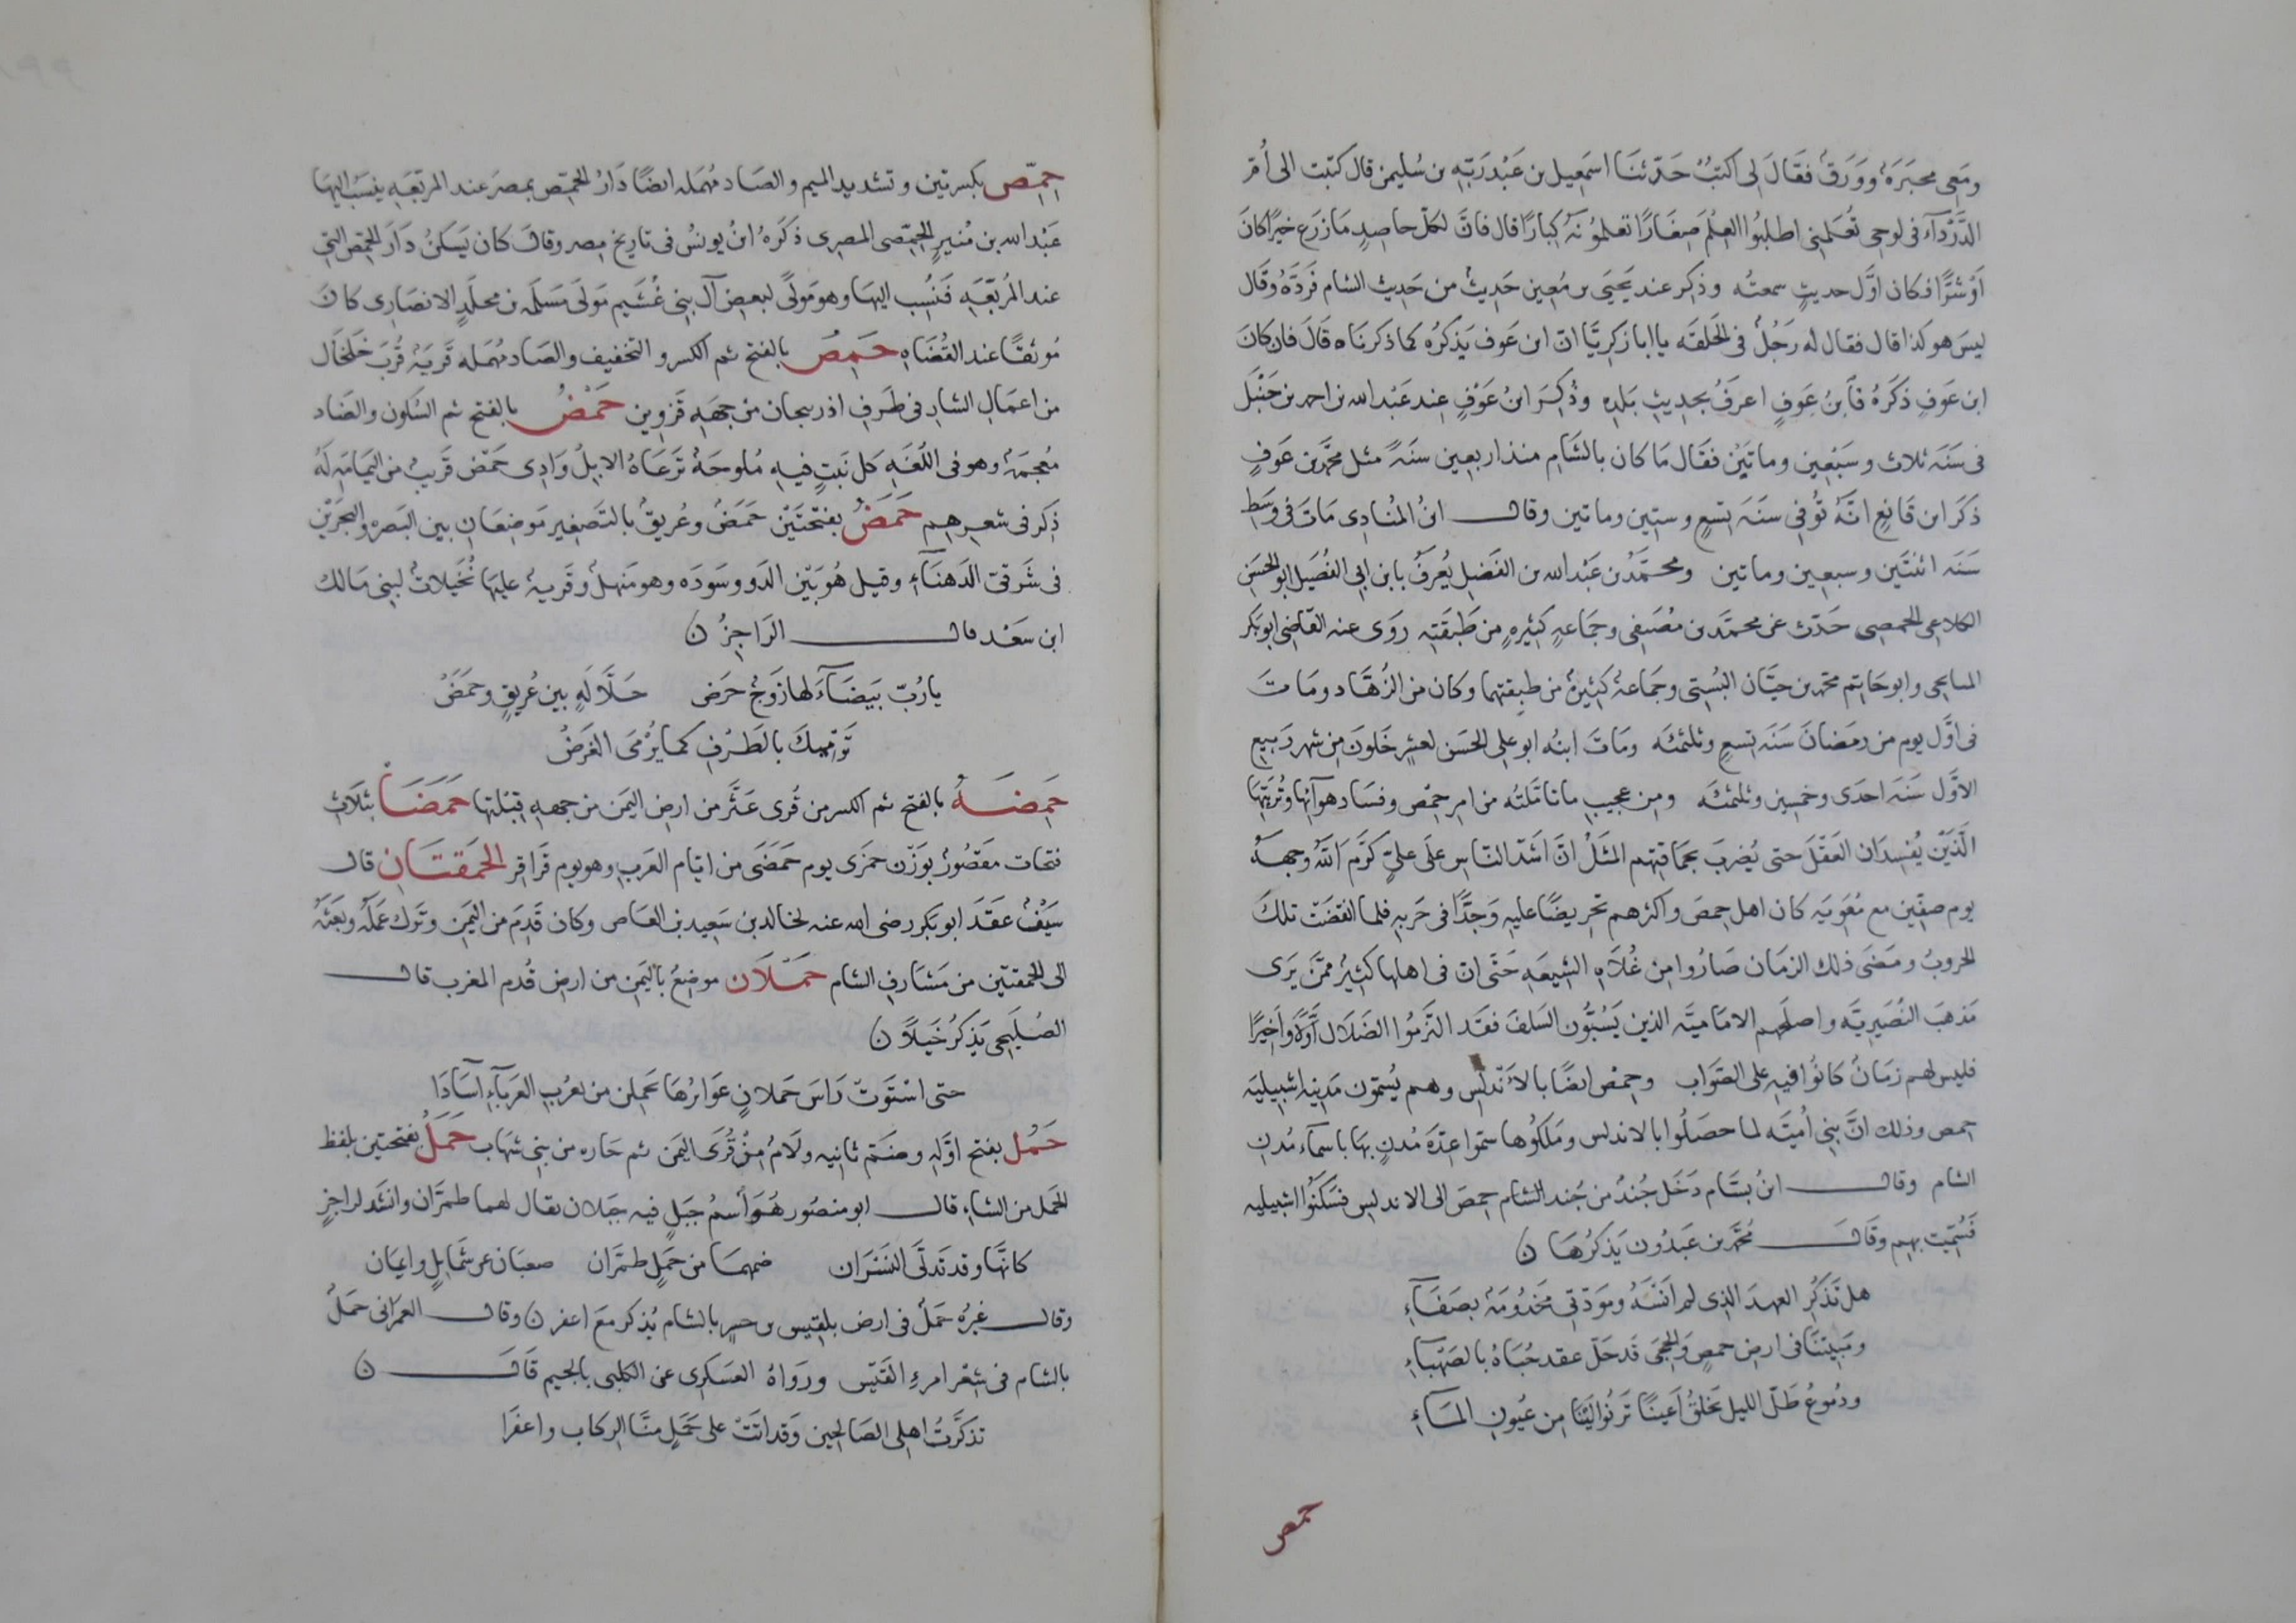 ومَعى محبَرَة ووَرَق فقَالَ لى اكتبْ حَدّثنَا اسمَعِيل بن عَبْد رَبّه بن سُليمن قال كتبت الى أُمّ
الدَّرْدَآءِ فى لوحى تُعَلمنِى اطلبُوا العِلْمَ صِغَارًا تعلموُنَهُ كبَارًا قال فانَّ لكلّ حاصِدٍ مَا زرَع خيرًا كانَ
اَوْ شرًّا فكان اوّل حديثٍ سمعتُه وذُكِر عند يَحيَى بن مُعِين حَدِيثٌ من حَدِيث الشام فَردَّهُ وَقَال
ليسَ هو كذا قال فقال له رَجُلٌ فى الحَلقَه يا ابا زكرِيَّا انّ ابن عَوف يَذكرُه كما ذكرنَاه قَالَ فان كانَ
ابن عَوفٍ ذكَرَهُ فَابنُ عَوفٍ اعرَفُ بحدِيثِ بَلدِه وذُكِرَ ابنُ عَوْفٍ عِندَ عَبْد الله بن احمد بن حَنْبَل
فى سَنَه ثلاث وسَبْعِين وماتَيْن فقَال مَا كان بالشَام منذ اربعين سنَةً مثل محمّد بن عَوفٍ
ذكَرَ ابن قَانِع انّهُ تُوُفى سنَه تِسعٍ وستِين وماتين وقال ابنُ المُنادِى مَاتَ فى وسَطِ
سَنَه اثنتَين وسبعِين وماتين ومحمَّدُ بن عَبْد الله بن الفَضِل يُعرَفُ بابن ابى الفُضَيل ابو الحَسَن
الكلاعِى الحمصِى حَدّث عَن محمّد بن مُصَفى وجمَاعهٍ كثيرهٍ من طَبقَتِه روَى عنه القَاضى ابو بكر
الميايجى وابو حَاتِم محمّد بن حبَّان البُستِى وجمَاعهٌ كثيرةٌ من طبقتهما وكان من الزُهَّاد ومَاتَ
فى اوّل يوم من رمَضانَ سَنَه تِسعٍ وثلثمئَه ومَاتَ ابنُه ابو على الحَسَن لعشرٍ خَلَونَ مِن شهر رَبِيعٍ
الاوّل سَنَه احدَى وخمسِين وثلثمئَه ومِن عجِيبِ ما تامّلتُه من امرِ حِمْص وفسَاد هوآئها وتُربتِهَا
الَّذَيْن يُفسِدَان العَقْلَ حتى يُضرَبَ بحمَاقتِهم المثَلُ انّ اشَدّ النّاسِ علَى علىٍّ كرّم اللهُ وجهَهُ
يوم صِفّين مع مُعَويَه كان اهل حِمصَ واكثرهم تحريضًا عليهِ وَجدًّا فى حَربهِ فلمّا انقضَت تلكَ
الحروبُ ومَضَى ذلك الزمَان صَارُوا مِن غُلاه الشِيعَهِ حَتّى ان فى اهلها كثِيرٌ ممّن يَرَى
مَذهبَ النُصَيرِيَّه واصلَهم الاماميَّه الذين يَسُبُّون السَلفَ فقد التزمُوا الضَلال اَوّلًا واَخِيرًا
فليس لهم زمَانٌ كانُوا فيهِ على الصَوَاب وحِمصْ ايضًا بالاَنْدلُس وهم يُسمّون مَدِينه اشبيليَه
حمص وذلك انّ بنِى اُميَّه لما حصَلُوا بالاندلس ومَلكُوها سمّوا عِدّةَ مُدنٍ بهَا باسمآء مُدنِ
الشام وقال ابنُ بسَّام دَخَل جُندٌ من جُند الشام حِمصَ الى الاندلس فسَكنُوا اشبيليه
فَسُمّيت بهِم وقَالَ محمّد بن عَبدُون يَذكرُهَا ن
هل تَذكُرِ العهدَ الذِى لم اَنسَهُ ومَودّتى مخدُومَةٌ بصَفَآءِ
ومَبِيتنَا فى ارضِ حِمصٍ وَالحِجَى قَد حَلّ عقد حُبَاهُ بالصَهْبآءِ
ودُموُعُ طَلّ الليل تخلقُ اَعينًا تَرنُوا الَيْنَا مِن عُيُونِ المَآءِ
حمص
حِمّص بكسرتين وتشدِيد الميم والصَاد مُهمَله ايضًا دَارُ الحِمّص بمصرَ عند المربَّعَهِ ينسَبُ اليهَا
عَبْد الله بن مُنيرٍ الحِمّصى المصرِى ذكَرَهُ ابنُ يونسُ فى تاريخ مِصر وقالَ كان يَسكنُ دَارَ الحِمّص التى
عند المُربّعَهِ فَنُسِب اليهَا وهو مَولًى لبعضِ آلِ بنى غُشَيم مَولَى مَسلَمه بن مخلّدٍ الانصَارِى كانَ
مُوثقًا عند القُضَاهِ حَمِصُ بالفتح ثم الكسر والتخفيف والصَاد مُهمَله قَريَهٌ قُربَ خَلخَال
من اعمَالِ الشِارِ فى طَرَفِ اذربيجان من جهَهِ قَزوِين حَمْضُ بالفتح ثم السُكون والضَاد
مُعجمَهٌ وهو فى اللُغَهِ كل نَبتٍ فيهِ مُلوحَةٌ تَرعَاهُ الابلُ وَادِى حَمْض قَرِيبٌ من اليمَامَه لَهُ
ذِكر فى شعرِهم حَمَضُ بفتحتَيْن حَمَضُ وعُريقُ بالتَصغِير مَوضعَانِ بين البَصرَه والبحرَيْن
فى شَرقىّ الدَهنَآءِ وقيل هُو بَيْن الدَوو وسَودَه وهو مَنهلٌ وقَريهٌ عليهَا نُخَيلاتٌ لبنى مَالك
ابن سَعْد قال الرَاجزُ ن
يا رُبّ بَيضَآءَ لهَا زَوجٌ حَرَض حَلّالَهٍ بين عُريقٍ وحَمَضُ
تَرميكَ بالطَرْفِ كما يُرْمَى الغَرَضُ
حَمِضَهُ بالفتح ثم الكسر من قُرى عَثَّر من ارض اليمَن من جهه قِبْلتها حَمَضَا بثلاث
فتحات مَقصُورٌ بوَزْن حمزَى يوم حَمَضَى من ايّام العَرَبِ وهو يوم قَراقِر الحَمقتَانِ قال
سَيْفٌ عَقَدَ ابو بَكر رضى الله عنه لخالد بن سَعِيد بن العَاص وكان قَدِمَ من اليمَنِ وتَرك عَملَهُ وبعَثَهُ
الى الحَمقتَين من مَشَارفِ الشام حَمْلَان موضِعٌ باليَمن من ارض قُدم المغرب قال
الصُليحى يَذكرُ خَيلًا ن
حتى اسْتَوتْ رَاسَ حَملانٍ عَوابرُهَا يحملن من يعرُبِ العَربآءِ اَسَادَا
حَمُل بفتح اوّلهِ وضَمّ ثانِيه ولَامٌ مِنْ قُرَى اليمَن ثم حَازه من بنى شهَاب حَمَلُ بفتحتين بلفظ
الحَمل من الشاءِ قال ابو منصُور هُوَ اسمُ جَبلٍ فيهِ جَبَلان يقال لهما طمرّان وانشد لراجزٍ
كانّها وقد تدلّى النسَران ضمهمَا من حَملٍ طمرّان صعبَان عن شمَايلٍ وايمَان
وقال غيرُه حَملٌ فى ارض بلقيس بن جسر بالشام يُذكر مَع اعفر ن وقال العمرَانى حَملٌ
بالشام فى شِعْر امرءِ القَيْس ورَواهُ العَسكرِى عن الكلبى بالجيم قَالَ ن
تذكَّرتُ اهلِى الصَالِحين وَقد اتَتْ على حَمَلٍ منَّا الركاب واعفَرا